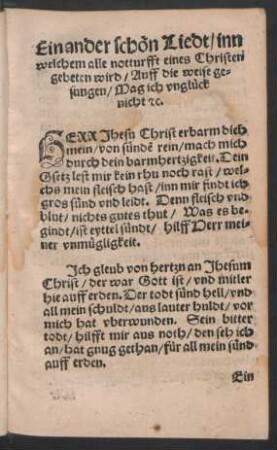 Ein ander schön Liedt/inn
welchem alle notturfft eines Christen
gebeten wird/Auff die weise ge-
sungen/Mag ich vnglück
nicht ꝛc.
HERR Jhesu Christ erbarm dich
mein/von sündē rein/mach mich
durch dein barmhertzigkeit. Dein
Gsetz lest mir kein rhu noch rast/wel-
chs mein fleisch hast/inn mir findt ich
gros sünd vnd leidt. Denn fleisch vnd
blut/nichts gutes thut/Was es be-
gindt/ist eyttel sündt/hilff Herr mei-
ner vnmügligkeit.
Ich gleub von hertzn an Jhesum
Christ/der war Gott ist/vnd mitler
hie auff erden. Der todt sünd hell/vnd
all mein schuldt/aus lauter huldt/vor
mich hat vberwunden. Sein bitter
todt/hilfft mir aus noth/den seh ich
an/hat gnug gethan/für all mein sünd
auff erden.
Ein